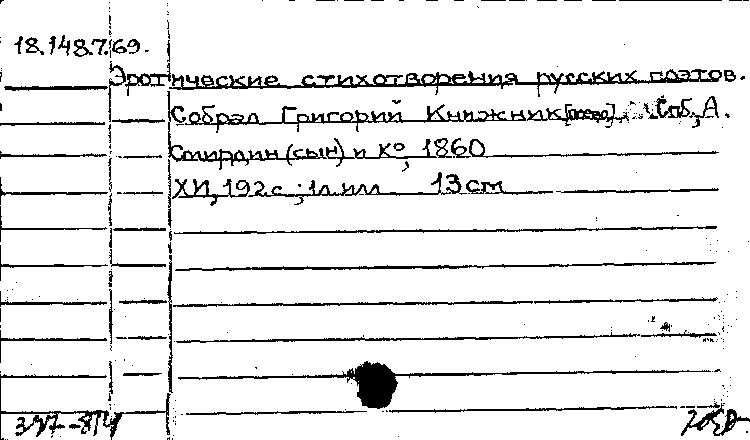 18.148.7.69.
Эротические стихотворения русских поэтов.
Собрал Григорий Книжник [псевд]. Спб, А.
Смирдин (сын) и Ко, 1860
XИ, 192 с ; 1л илл 13 см